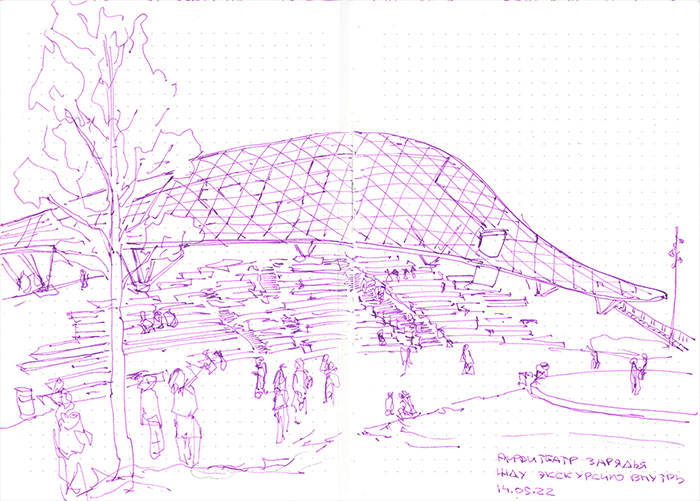 АМФИТЕАТР ЗАРЯДЬЯ
ЖДУ ЭКСКУРСИЮ ВНУТРЬ
14.05.22